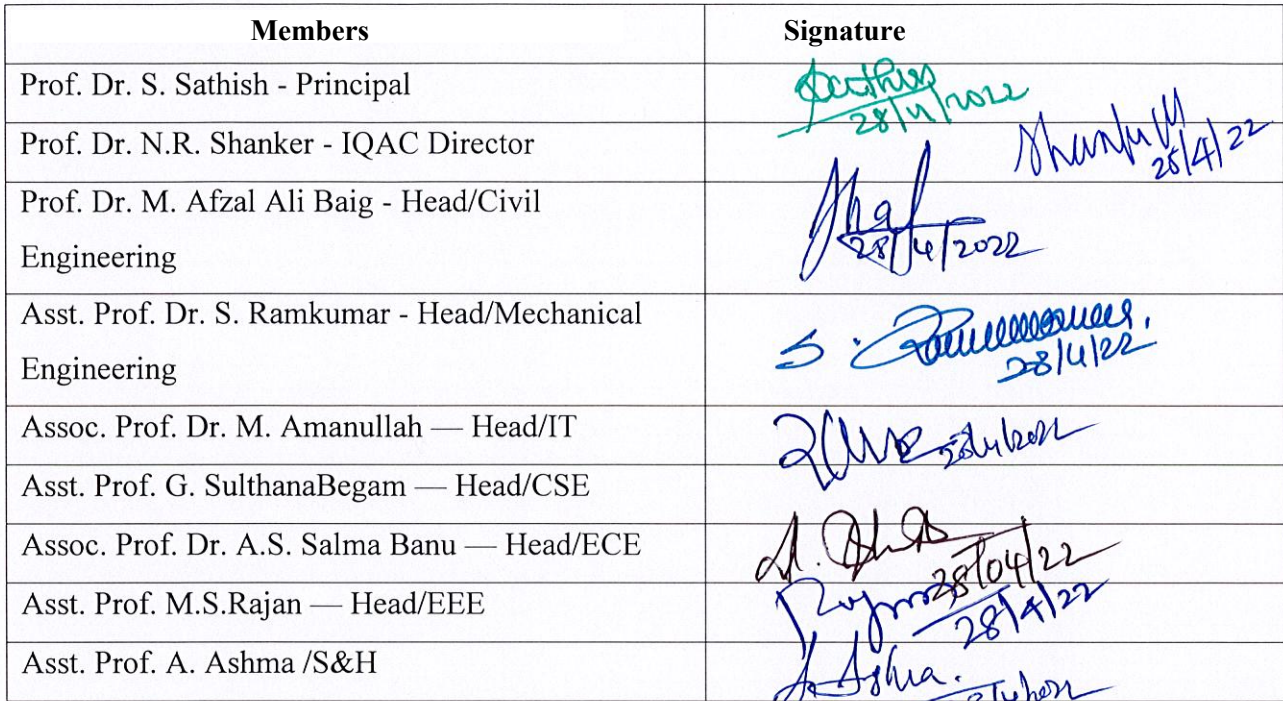 Members Signature
Prof. Dr. S. Sathish - Principal
28/4/2022
Prof. Dr. N.R. Shanker - IQAC Director
/4/22
Prof. Dr. M. Afzal Ali Baig - Head/Civil
Engineering
28/4/2022
Asst. Prof. Dr. S. Ramkumar - Head/Mechanical
Engineering
S.
28/4/22
Assoc. Prof. Dr. M. Amanullah — Head/IT
28/4/2022
Asst. Prof. G. SulthanaBegam — Head/CSE
Assoc. Prof. Dr. A.S. Salma Banu — Head/ECE
28/04/22
Asst. Prof. M.S.Rajan — Head/EEE
28/4/22
Asst. Prof. A. Ashma /S&H
A. Ashma.